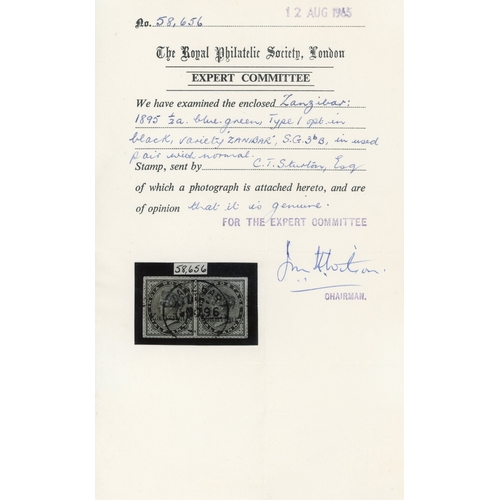 No. 58,656
12 AUG 1965
The Royal Philatelic Society, London
EXPERT COMMITTEE
We have examined the enclosed Zanzibar:
1895 ½a. blue-green, Type 1 opt. in
black, variety "ZANIBAR", S.G. 3 B, in used
pair with normal.
Stamp, sent by C.T. Sturton, Esq
of which a photograph is attached hereto, and are
of opinion that it is genuine.
FOR THE EXPERT COMMITTEE
CHAIRMAN.
58,656